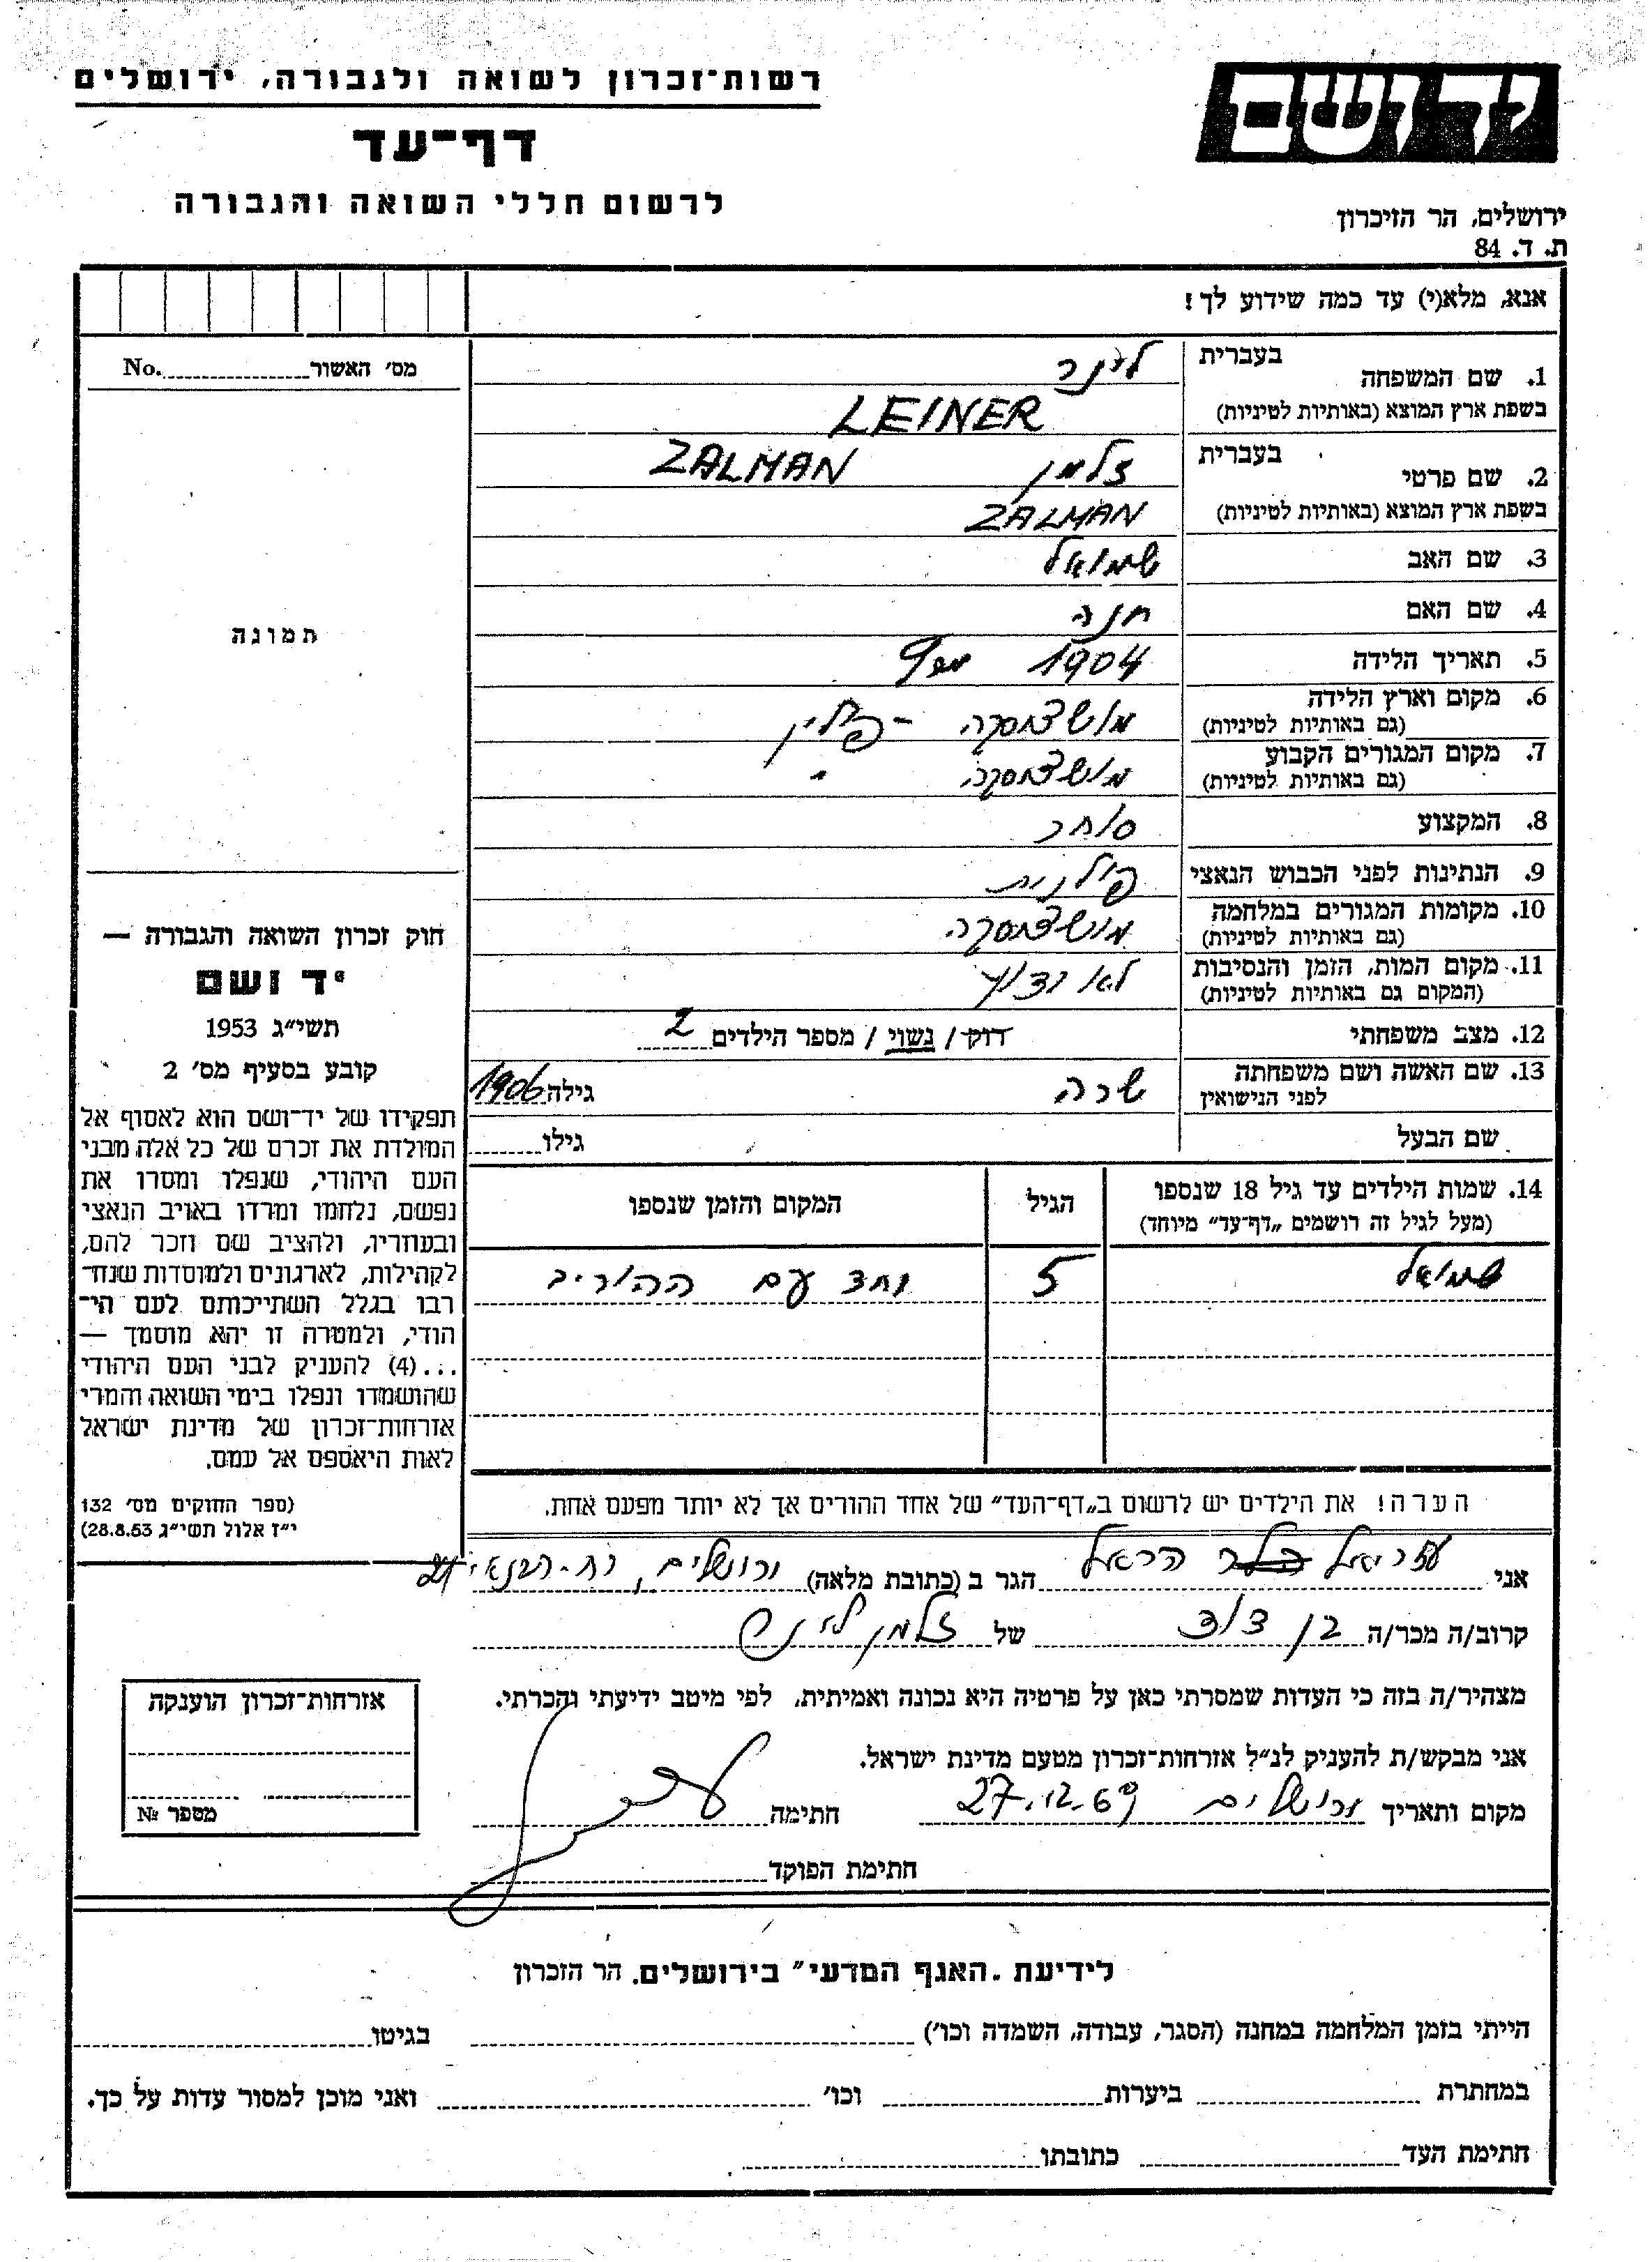 רשות־זכרון לשואה ולגבורה, ירושלים
דף־עד
לרשום חללי השואה והגבורה
יד ושם
ירושלים, הר הזיכרון
ת. ד. 84
אנא, מלא(י) עד כמה שידוע לך!
מס׳ האשור No.
תמונה
1. שם המשפחה בעברית לינר
בשפת ארץ המוצא (באותיות לטיניות) LEINER
2. שם פרטי בעברית זלמן ZALMAN
בשפת ארץ המוצא (באותיות לטיניות) ZALMAN
3. שם האב שמואל
4. שם האם חנה
5. תאריך הלידה 1904
6. מקום וארץ הלידה
(גם באותיות לטיניות) מושצ׳יסקה - פולין
7. מקום המגורים הקבוע
(גם באותיות לטיניות) מושצ׳יסקה "
8. המקצוע סוחר
9. הנתינות לפני הכבוש הנאצי פולנית
10. מקומות המגורים במלחמה
(גם באותיות לטיניות) מושצ׳יסקה
11. מקום המות, הזמן והנסיבות
(המקום גם באותיות לטיניות) לא ידוע
12. מצב משפחתי רוק / נשוי / מספר הילדים 2
13. שם האשה ושם משפחתה
לפני הנישואין שרה גילה 1906
שם הבעל גילו
14. שמות הילדים עד גיל 18 שנספו
(מעל לגיל זה רושמים „דף־עד״ מיוחד)
הגיל
המקום והזמן שנספו
שמואל 5 יחד עם ההורים
הערה! את הילדים יש לרשום ב„דף־העד״ של אחד ההורים אך לא יותר מפעם אחת.
חוק זכרון השואה והגבורה —
יד ושם
תשי״ג 1953
קובע בסעיף מס׳ 2
תפקידו של יד־ושם הוא לאסוף אל
המולדת את זכרם של כל אלה מבני
העם היהודי, שנפלו ומסרו את
נפשם, נלחמו ומרדו באויב הנאצי
ובעוזריו, ולהציב שם וזכר להם,
לקהילות, לארגונים ולמוסדות שנח־
רבו בגלל השתייכותם לעם הי־
הודי, ולמטרה זו יהא מוסמך —
...(4) להעניק לבני העם היהודי
שהושמדו ונפלו בימי השואה והמרי
אזרחות־זכרון של מדינת ישראל
לאות היאספם אל עמם.
(ספר החוקים מס׳ 132
י״ז אלול תשי״ג 28.8.53)
אני עזריאל הראל הגר ב (כתובת מלאה) ירושלים, רח.
קרוב/ה מכר/ה בן דוד של זלמן לינר
מצהיר/ה בזה כי העדות שמסרתי כאן על פרטיה היא נכונה ואמיתית, לפי מיטב ידיעתי והכרתי.
אני מבקש/ת להעניק לנ״ל אזרחות־זכרון מטעם מדינת ישראל.
מקום ותאריך ירושלים 27.12.69 חתימה
חתימת הפוקד
אזרחות־זכרון הוענקה
מספר №
לידיעת „האגף המדעי״ בירושלים. הר הזכרון
הייתי בזמן המלחמה במחנה (הסגר, עבודה, השמדה וכו׳) בגיטו
במחתרת ביערות וכו׳ ואני מוכן למסור עדות על כך.
חתימת העד כתובתו